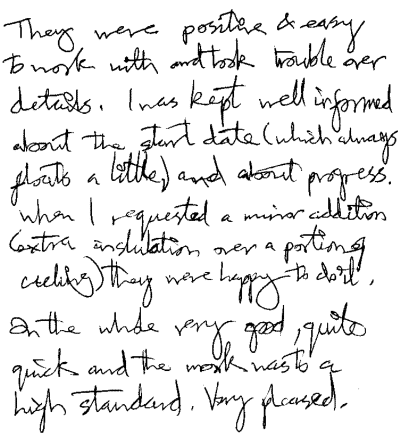 They were positive & easy
to work with and took trouble over
details. I was kept well informed
about the start date (which always
floats a little) and about progress.
When I requested a minor addition
(extra insulation over a portion of
ceiling) they were happy to do it.
On the whole very good, quite
quick and the work was to a
high standard. Very pleased.